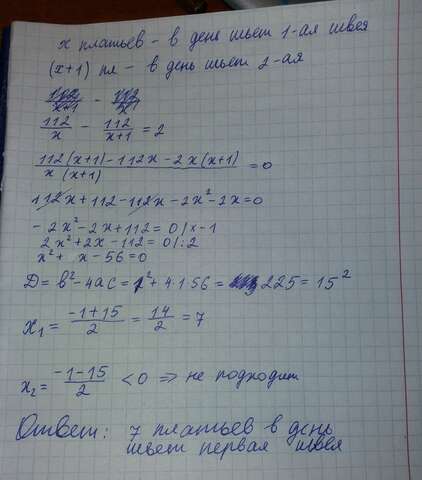 x платьев - в день шьет 1-ая швея
(x+1) пл - в день шьет 2-ая
112/x - 112/(x+1) = 2
(112(x+1)-112x-2x(x+1))/(x(x+1)) = 0
112x+112-112x-2x²-2x=0
-2x²-2x+112=0 /x-1
2x²+2x-112=0 /:2
x²+x-56=0
D=b²-4ac=1²+4·1·56=225=15²
x₁=(-1+15)/2=14/2=7
x₂=(-1-15)/2 <0 ⇒ не подходит
Ответ: 7 платьев в день
шьет первая швея